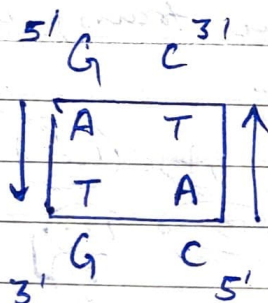 5' G C 3'
A T
T A
G C
3' 5'